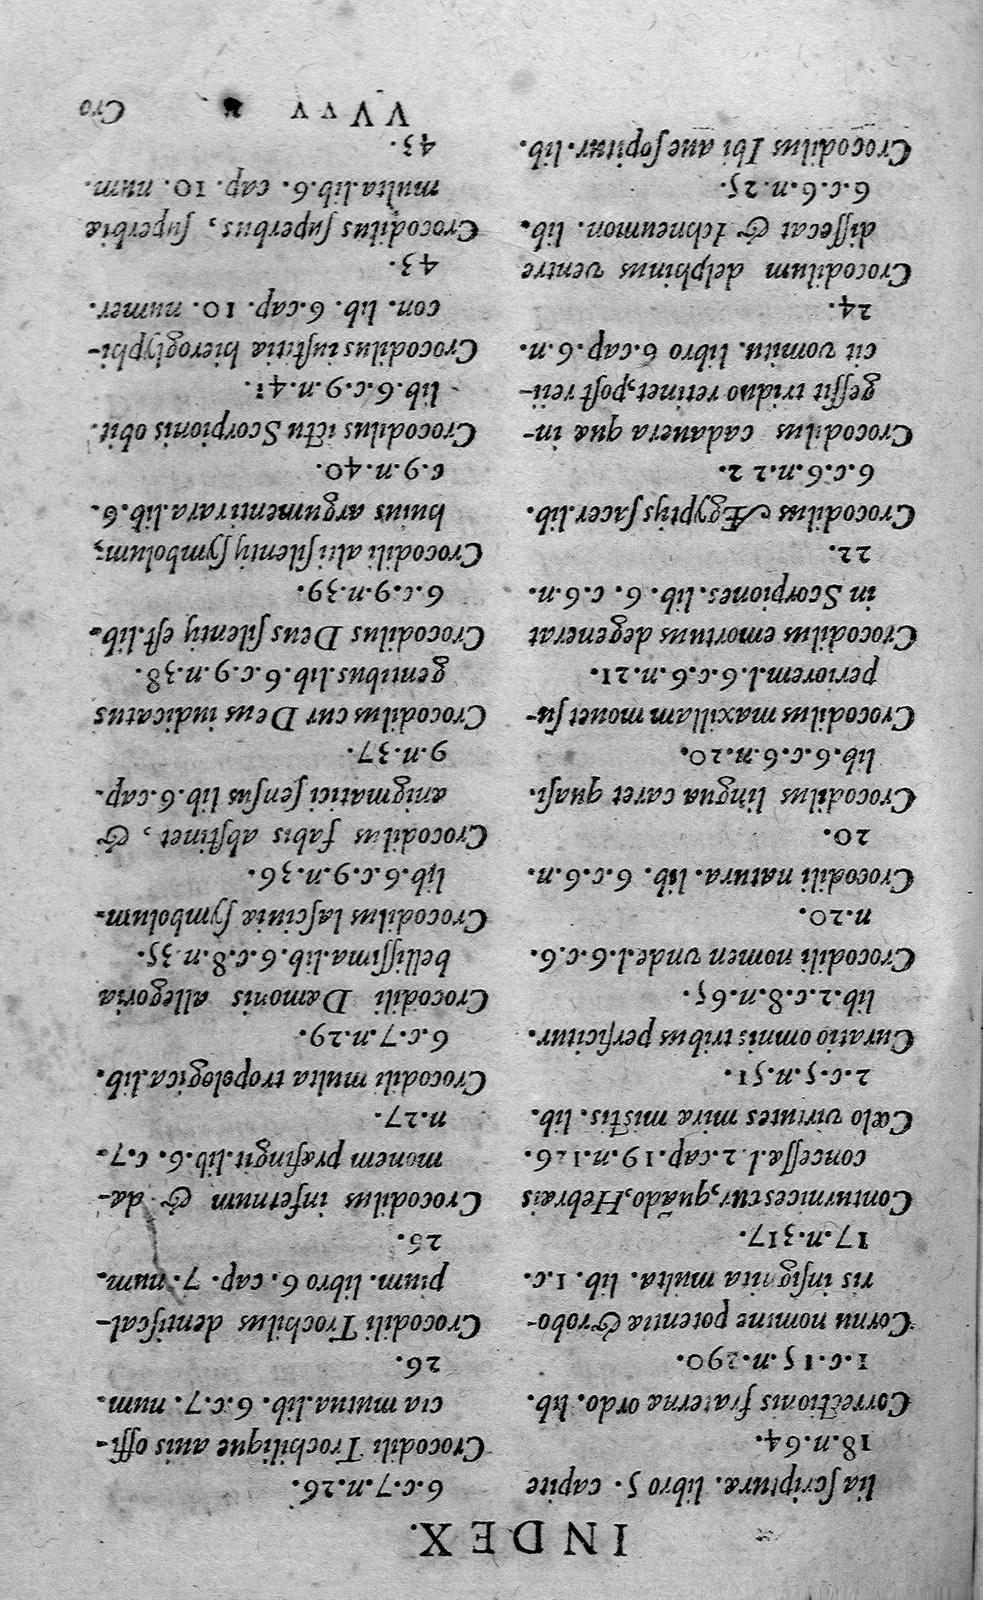 INDEX.
lia scripturæ. libro 5. capite
18.n.64.
Correctionis fraternæ ordo. lib.
1.c.15.n.290.
Cornu nomine potentiæ & robo-
ris insignita multa. lib. 1.c.
17.n.317.
Conturnices cur, quãdo, Hebræis
concessæ.l.2.cap.19.n.126.
Cœlo virtutes miræ mistis. lib.
2.c.5.n.51.
Curatio omnis tribus perficitur.
lib.2.c.8.n.65.
Crocodili nomen vnde.l.6.c.6.
n.20.
Crocodili natura. lib. 6.c.6.n.
20.
Crocodilus lingua caret quasi.
lib.6.c.6.n.20.
Crocodilus maxillam mouet su-
periorem.l.6.c.6.n.21.
Crocodilus emortuus degenerat
in Scorpiones. lib. 6. c.6.n.
22.
Crocodilus Ægyptijs sacer.lib.
6.c.6.n.22.
Crocodilus cadauera quæ in-
gessit triduo retinet, post reii-
cit vomitu. libro 6 cap.6.n.
24.
Crocodilum delphinus ventre
dissecat & Ichneumon. lib.
6.c.6.n.25.
Crocodilus Ibi aue sopitur. lib.
6.c.7.n.26.
Crocodili Trochilique auis offi-
cia mutua.lib. 6.c.7. num.
26.
Crocodili Trochilus dentiscal-
pium. libro 6. cap. 7. num.
26.
Crocodilus infernum & dæ-
monem præfingit.lib.6. c.7.
n.27.
Crocodili multa tropologica.lib.
6.c.7.n.29.
Crocodili Dæmonis allegoria
bellissima.lib.6.c.8.n.35.
Crocodilus lasciuiæ symbolum.
lib.6.c.9.n.36.
Crocodilus fabis abstinet, &
ænigmatici sensus lib.6.cap.
9.n.37.
Crocodilus cur Deus indicatus
gentibus.lib.6.c.9.n.38.
Crocodilus Deus silentij est.lib.
6.c.9.n.39.
Crocodili alii silentij symbolum,
huius argumenti rara.lib.6.
c.9.n.40.
Crocodilus ictu Scorpionis obit.
lib.6.c.9.n.41.
Crocodilus iustitia hieroglyphi-
con. lib. 6.cap. 10. numer.
43.
Crocodilus superbus, superbiæ
multa.lib.6. cap. 10. num.
43.
VVvv Cro